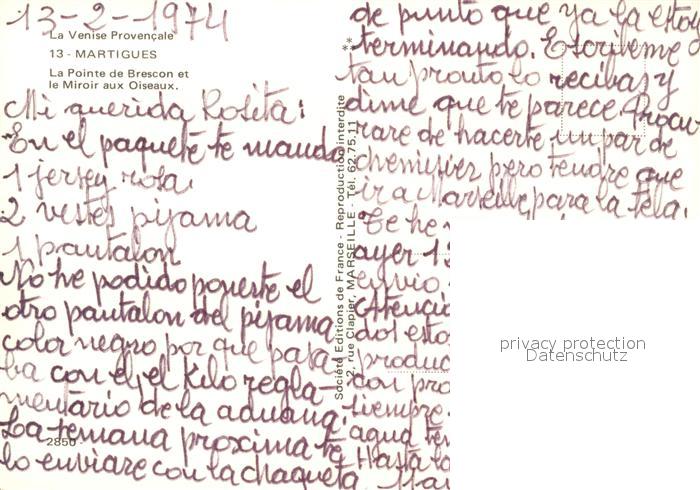 13-2-1974
La Venise Provençale
13 - MARTIGUES
La Pointe de Brescon et
le Miroir aux Oiseaux.
Mi querida Rosita:
En el paquete te mando
1 jersey rosa.
2 vestes pijama
1 pantalon
No he podido ponerte el
otro pantalon del pijama
color negro por que pasa
ba con el, el Kilo regla-
mentario de la aduana.
La semana proxima te
lo enviare con la chaqueta
2850 -
Société Editions de France - Reproduction interdite
2, rue Clapier, MARSEILLE - Tél. 62.75.11
de punto que ya la estoy
terminando. Escribeme
tan pronto lo recibas y
dime que te parece. Procu-
rare de hacerte un par de
chemisier pero tendre que
ir a Marseille para la tela.
Te he
ayer
envio
Atencio
dos esto
produc
con pro
siempre
agua
Hasta
privacy protection
Datenschutz